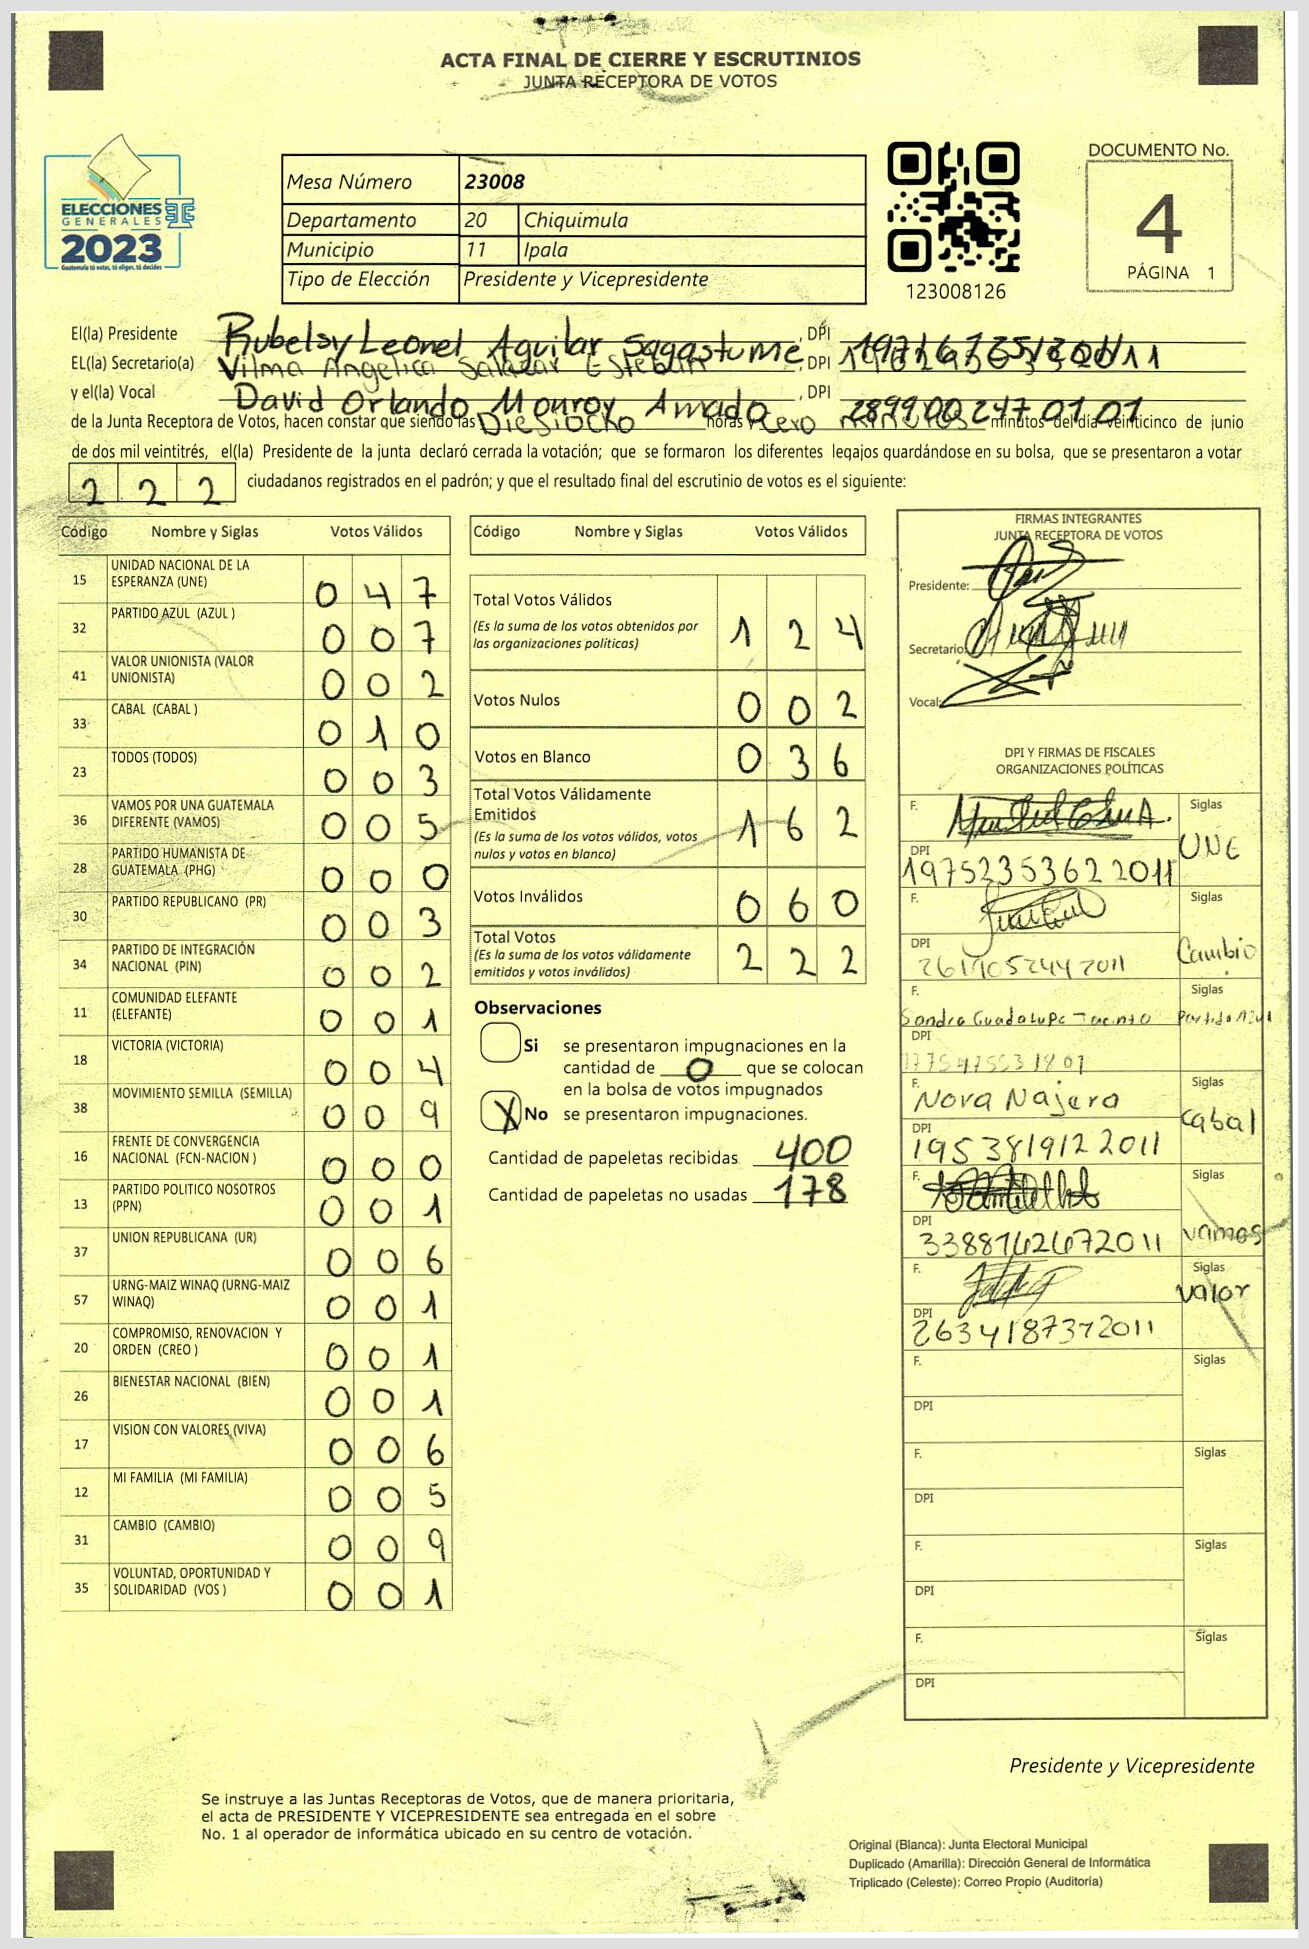 ACTA FINAL DE CIERRE Y ESCRUTINIOS
JUNTA RECEPTORA DE VOTOS
ELECCIONES
GENERALES
2023
Guatemala tú votas, tú eliges, tú decides
Mesa Número 23008
Departamento 20 Chiquimula
Municipio 11 Ipala
Tipo de Elección Presidente y Vicepresidente
123008126
DOCUMENTO No.
4
PÁGINA 1
El(la) Presidente Rubelsy Leonel Aguilar Sagastume, DPI
EL(la) Secretario(a) Vilma Angelica Salazar Esteban, DPI
y el(la) Vocal David Orlando Monroy Amado, DPI 2899 00247 0101
de la Junta Receptora de Votos, hacen constar que siendo las Diesiocho horas y cero minutos minutos del día veinticinco de junio
de dos mil veintitrés, el(la) Presidente de la junta declaró cerrada la votación; que se formaron los diferentes legajos guardándose en su bolsa, que se presentaron a votar
2 2 2 ciudadanos registrados en el padrón; y que el resultado final del escrutinio de votos es el siguiente:
Código Nombre y Siglas Votos Válidos
15 UNIDAD NACIONAL DE LA ESPERANZA (UNE) 0 4 7
32 PARTIDO AZUL (AZUL ) 0 0 7
41 VALOR UNIONISTA (VALOR UNIONISTA) 0 0 2
33 CABAL (CABAL ) 0 1 0
23 TODOS (TODOS) 0 0 3
36 VAMOS POR UNA GUATEMALA DIFERENTE (VAMOS) 0 0 5
28 PARTIDO HUMANISTA DE GUATEMALA (PHG) 0 0 0
30 PARTIDO REPUBLICANO (PR) 0 0 3
34 PARTIDO DE INTEGRACIÓN NACIONAL (PIN) 0 0 2
11 COMUNIDAD ELEFANTE (ELEFANTE) 0 0 1
18 VICTORIA (VICTORIA) 0 0 4
38 MOVIMIENTO SEMILLA (SEMILLA) 0 0 9
16 FRENTE DE CONVERGENCIA NACIONAL (FCN-NACION ) 0 0 0
13 PARTIDO POLITICO NOSOTROS (PPN) 0 0 1
37 UNION REPUBLICANA (UR) 0 0 6
57 URNG-MAIZ WINAQ (URNG-MAIZ WINAQ) 0 0 1
20 COMPROMISO, RENOVACION Y ORDEN (CREO ) 0 0 1
26 BIENESTAR NACIONAL (BIEN) 0 0 1
17 VISION CON VALORES (VIVA) 0 0 6
12 MI FAMILIA (MI FAMILIA) 0 0 5
31 CAMBIO (CAMBIO) 0 0 9
35 VOLUNTAD, OPORTUNIDAD Y SOLIDARIDAD (VOS ) 0 0 1
Código Nombre y Siglas Votos Válidos
Total Votos Válidos 1 2 4
(Es la suma de los votos obtenidos por
las organizaciones políticas)
Votos Nulos 0 0 2
Votos en Blanco 0 3 6
Total Votos Válidamente
Emitidos 1 6 2
(Es la suma de los votos válidos, votos
nulos y votos en blanco)
Votos Inválidos 0 6 0
Total Votos 2 2 2
(Es la suma de los votos válidamente
emitidos y votos inválidos)
Observaciones
Si se presentaron impugnaciones en la
cantidad de 0 que se colocan
en la bolsa de votos impugnados
X No se presentaron impugnaciones.
Cantidad de papeletas recibidas 400
Cantidad de papeletas no usadas 178
FIRMAS INTEGRANTES
JUNTA RECEPTORA DE VOTOS
Presidente:
Secretario:
Vocal:
DPI Y FIRMAS DE FISCALES
ORGANIZACIONES POLÍTICAS
F. Siglas UNE
DPI 1975235362 2011
F. Siglas Cambio
DPI
F. Sandra Guadalupe Jacinto Siglas Partido Azul
DPI
F. Nora Najera Siglas cabal
DPI 195 3819122011
F. Siglas vamos
DPI 3388142672011
F. Siglas valor
DPI 2634187372011
F. Siglas
DPI
F. Siglas
DPI
F. Siglas
DPI
F. Siglas
DPI
Presidente y Vicepresidente
Se instruye a las Juntas Receptoras de Votos, que de manera prioritaria,
el acta de PRESIDENTE Y VICEPRESIDENTE sea entregada en el sobre
No. 1 al operador de informática ubicado en su centro de votación.
Original (Blanca): Junta Electoral Municipal
Duplicado (Amarilla): Dirección General de Informática
Triplicado (Celeste): Correo Propio (Auditoría)